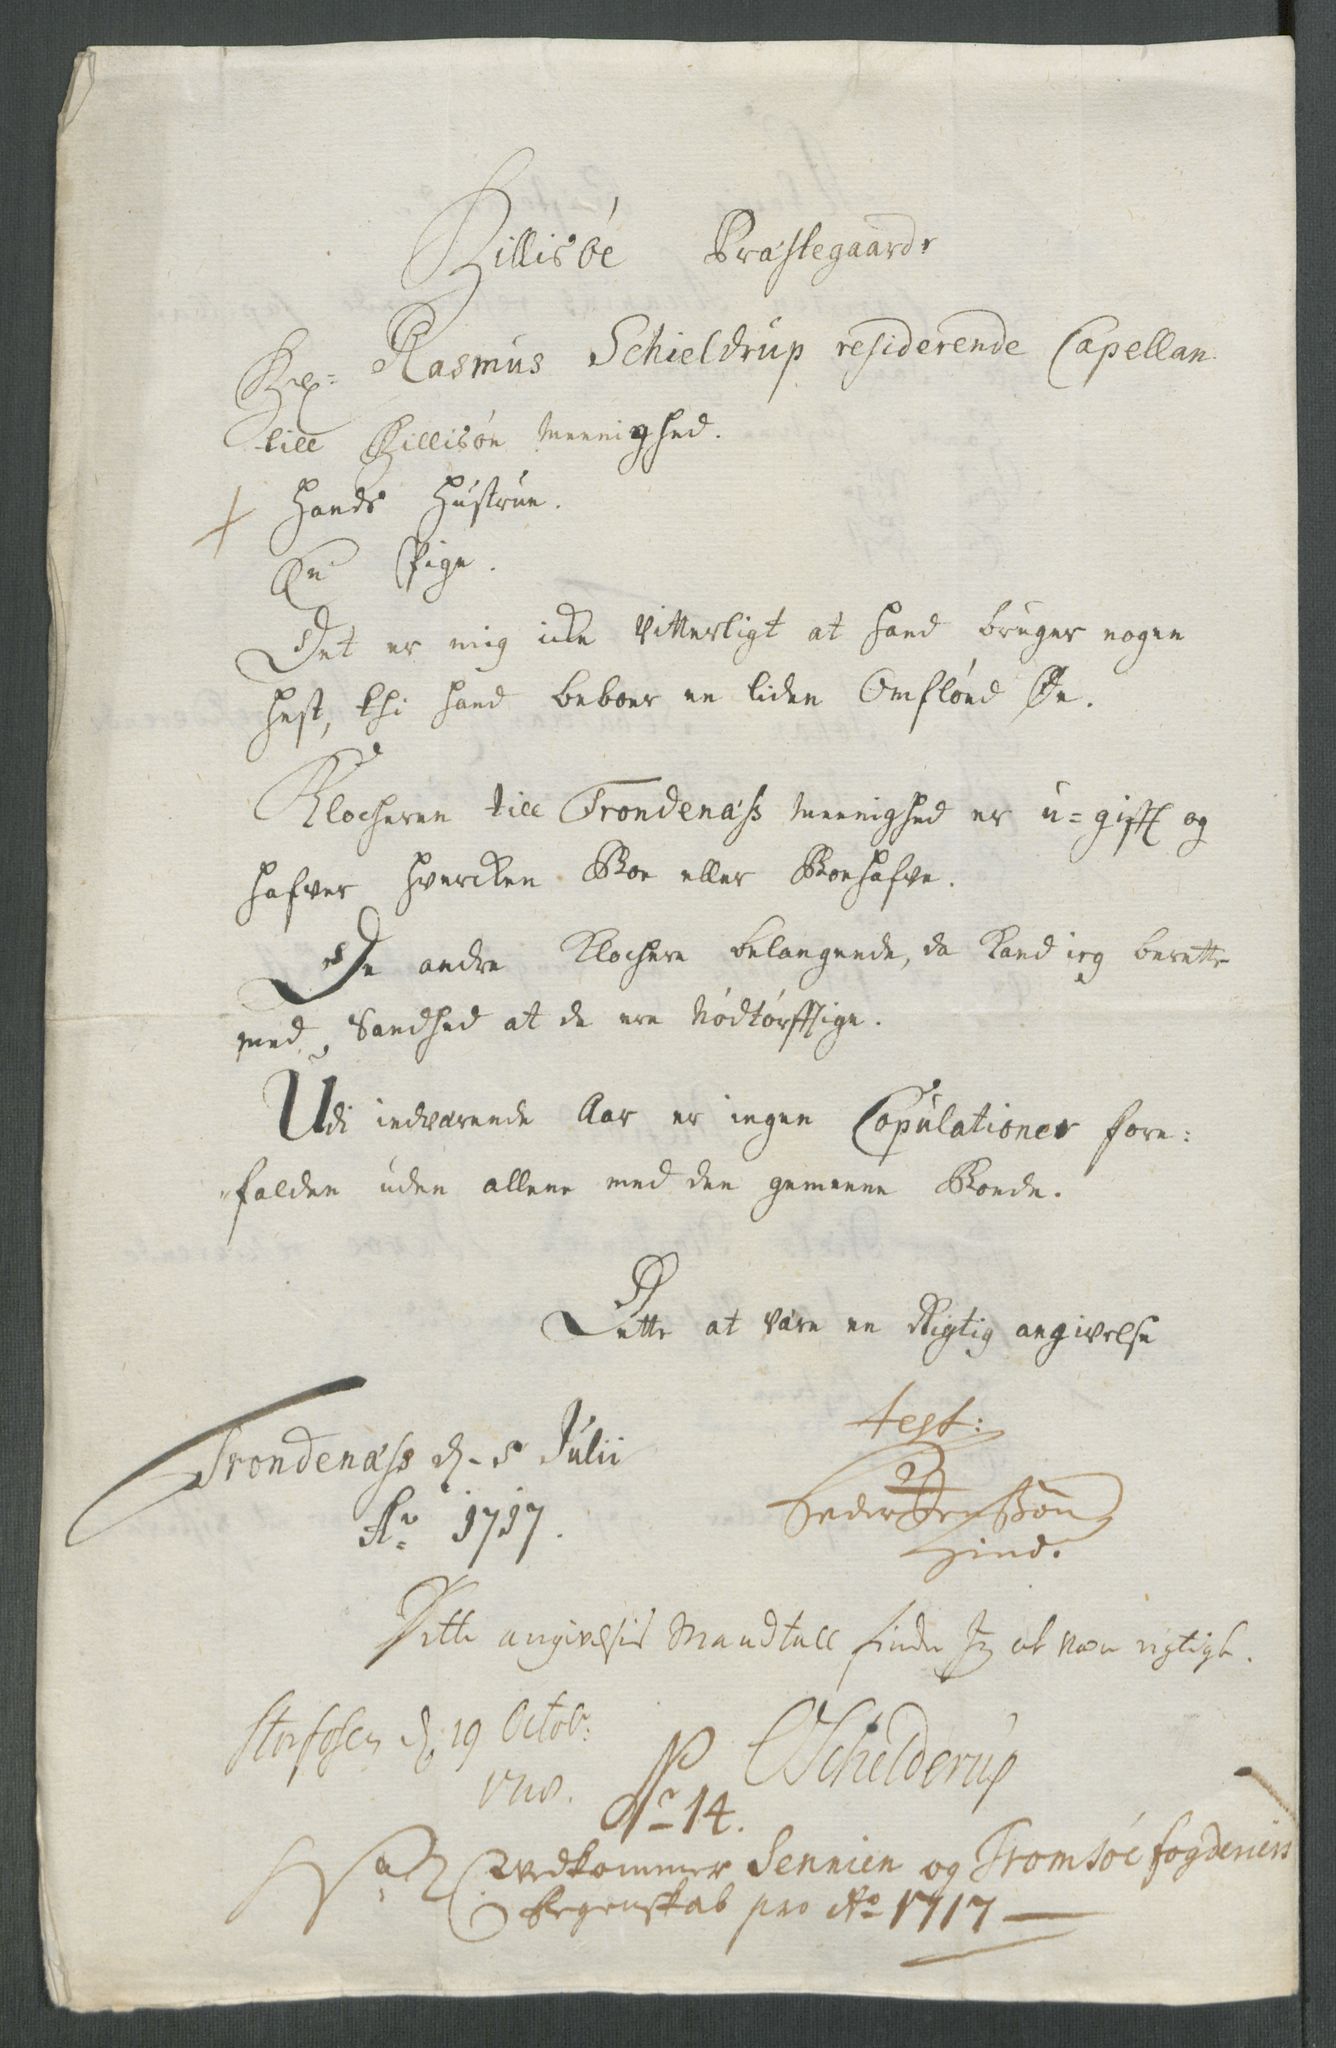 Killisöe Præstegaard
Hr: Rasmus Schieldrup residerende Capellan
till Killisöe Meenighed.
+ Hands Hustrue.
En Pige.
Det er mig icke Vitterligt at hand bruger nogen
Hest, thi hand beboer en liden Omfløed Øe.
Klockeren till Trondenæss Meenighed er u-gifft og
hafver hvercken Boe eller Boehafve.
De andre Klockere belangende, da Kand ieg berette
med Sandhed at de ere Nödtörfftige.
Udi indværende Aar er ingen Copulationer fore=
=falden uden allene med den gemeene Bonde.
Dette at være en Rigtig angivelse
Trondenæss d. 5 Julii
Ao 1717.
test:
Peder Jenssön
Hind.
Dette angivelsis Mandtall finder Jeg at være rigtigt.
Storfosen d. 19 Octobr:
1718.
OSchielderup
No 14.
Vedkommer Sennien og Tromsöe fogderiers
Regenskab pro Ao 1717